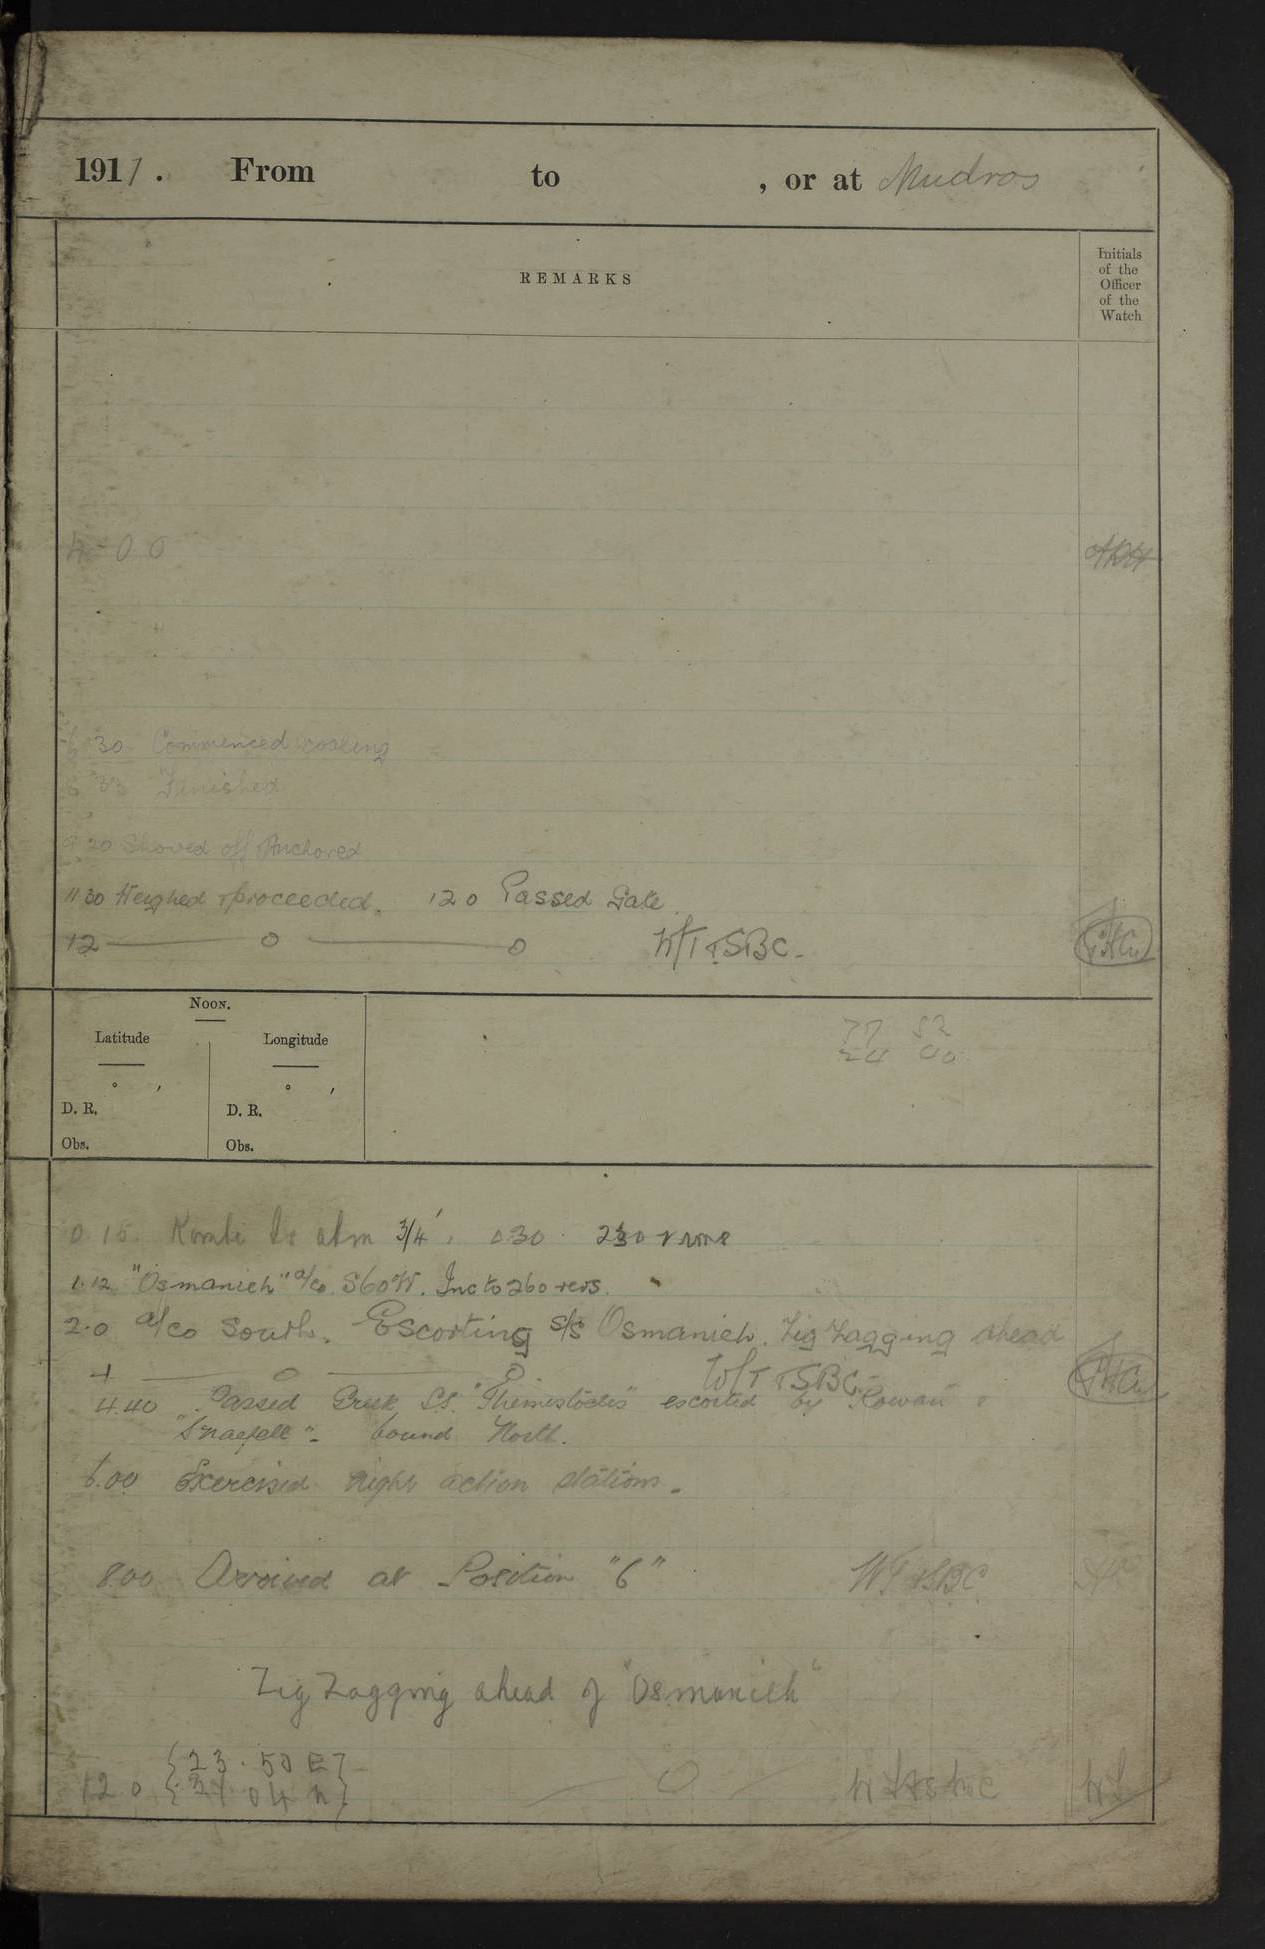 1917. From to , or at Mudros
REMARKS
Initials
of the
Officer
of the
Watch
4-00
30 Commenced coaling
Finished
20 Shoved off Anchored
11 30 Weighed & proceeded. 12 0 Passed Gate
12 — 0 — 0 W/T & SBC.
NOON.
Latitude Longitude
° ′ ° ′
D. R. D. R.
Obs. Obs.
0.15 Kombi Is abm 3/4', 0.30 230 revs
1.12 "Osmanieh" a/co S60W. Inc to 260 revs.
2.0 a/co South. Escorting s/s Osmanieh. Zig Zagging ahead
4 — 0 — 0 W/T & SBC.
4.40 Passed Greek S.S. "Themistocles" escorted by "Rowan" &
"Snaefell" - bound North.
6.00 Exercised night action stations.
8.00 Arrived at Position "6" W/T & SBC
Zig Zagging ahead of "Osmanieh"
12 0 {23.50 E}
04 N} 0